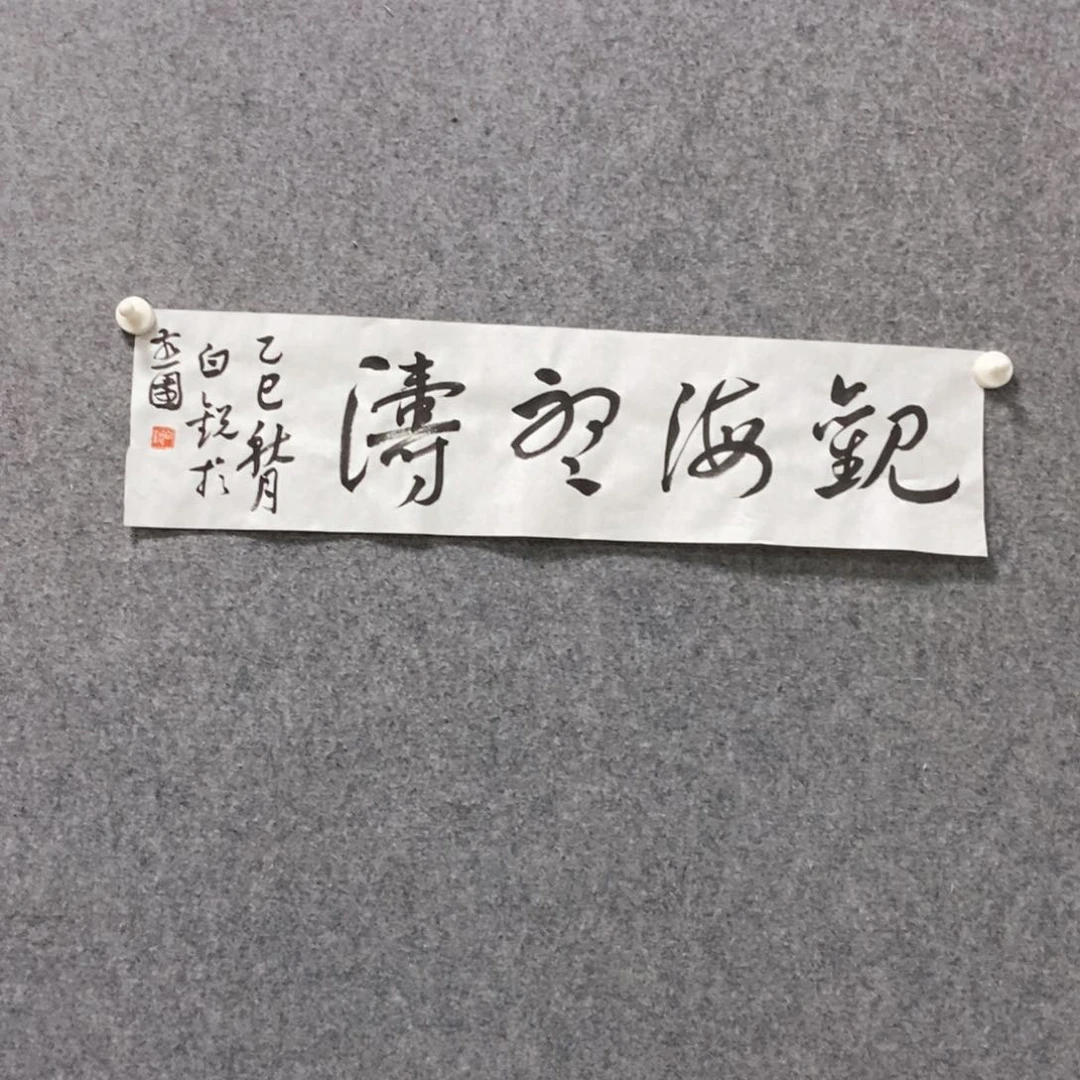 觀海聽濤
乙巳秋月
白銳於